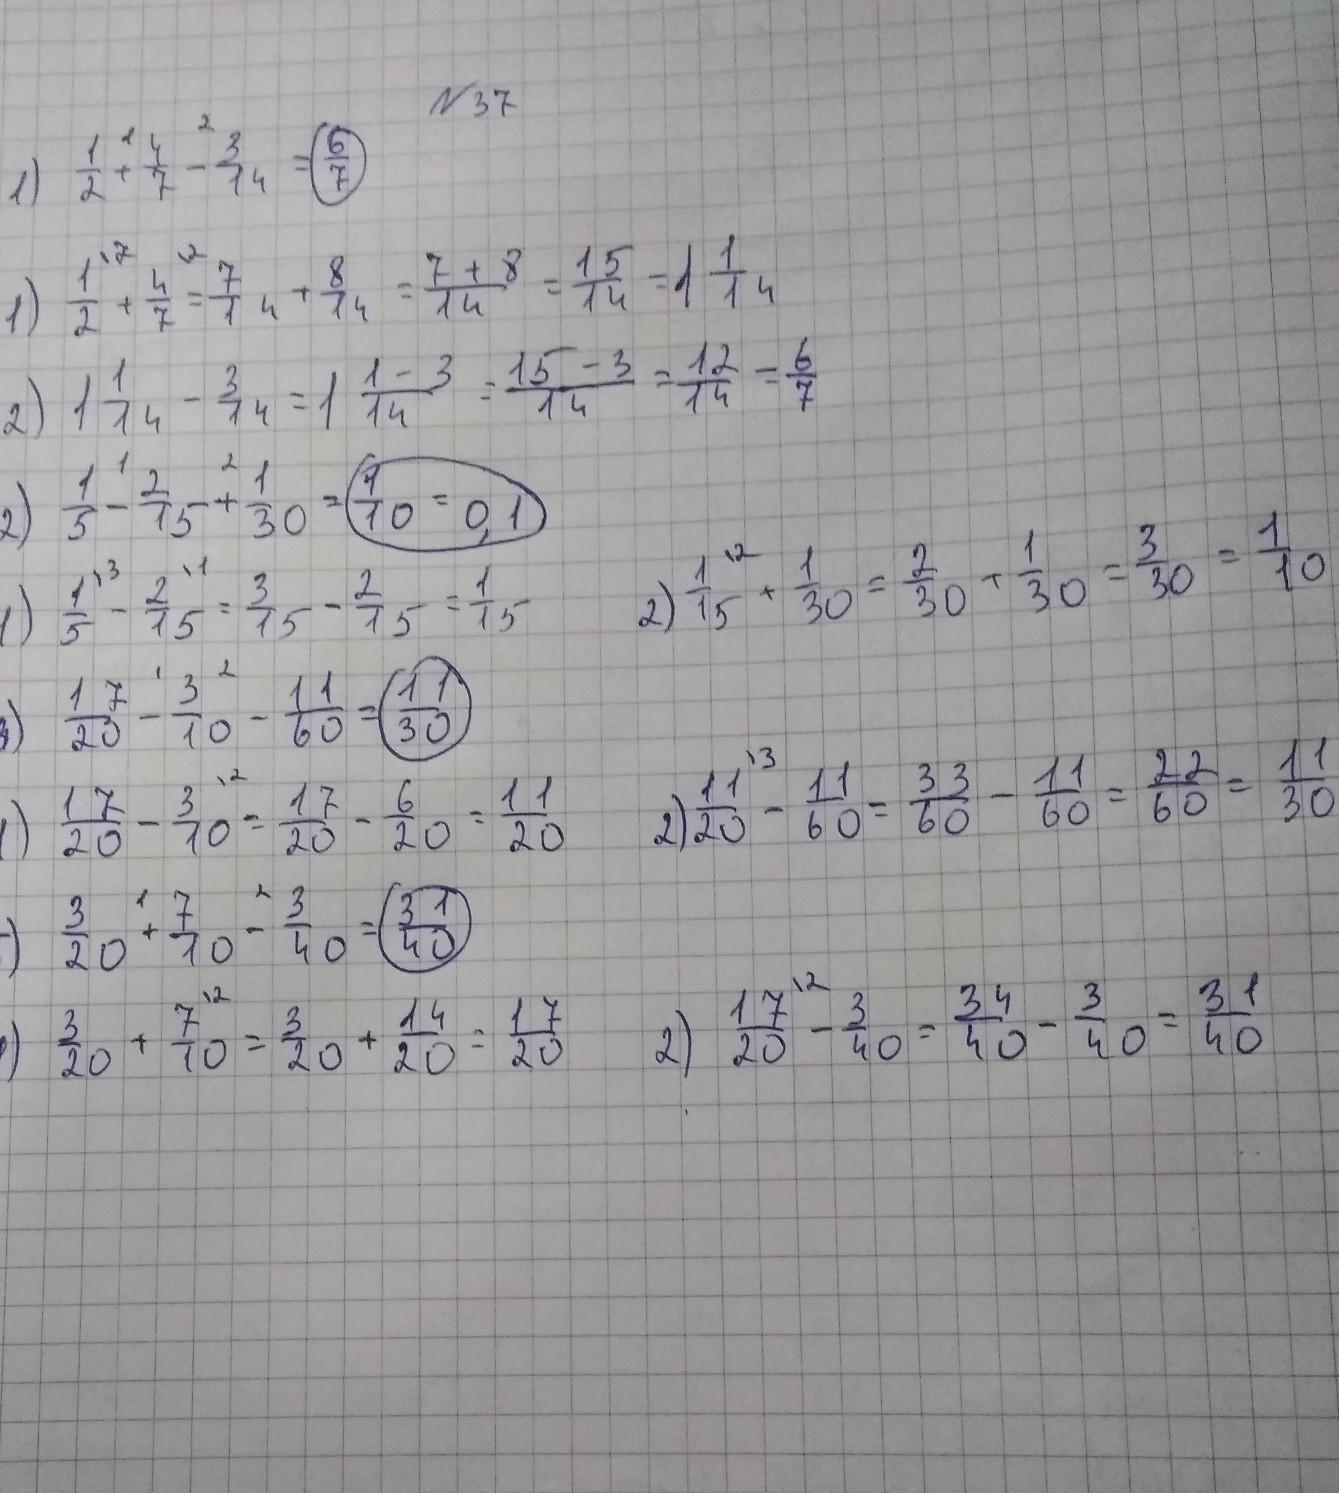 N 37
1) 1/2 +¹ 4/7 -² 3/14 = 6/7
1) 1/2 \7 + 4/7 \2 = 7/14 + 8/14 = 7+8/14 = 15/14 = 1 1/14
2) 1 1/14 - 3/14 = 1 1-3/14 = 15-3/14 = 12/14 = 6/7
2) 1/5 -¹ 2/15 +² 1/30 = 1/10 = 0,1
1) 1/5 \3 - 2/15 \1 = 3/15 - 2/15 = 1/15 2) 1/15 \2 + 1/30 = 2/30 + 1/30 = 3/30 = 1/10
3) 17/20 -¹ 3/10 -² 11/60 = 11/30
1) 17/20 - 3/10 \2 = 17/20 - 6/20 = 11/20 2) 11/20 \3 - 11/60 = 33/60 - 11/60 = 22/60 = 11/30
) 3/20 +¹ 7/10 -² 3/40 = 31/40
1) 3/20 + 7/10 \2 = 3/20 + 14/20 = 17/20 2) 17/20 \2 - 3/40 = 34/40 - 3/40 = 31/40